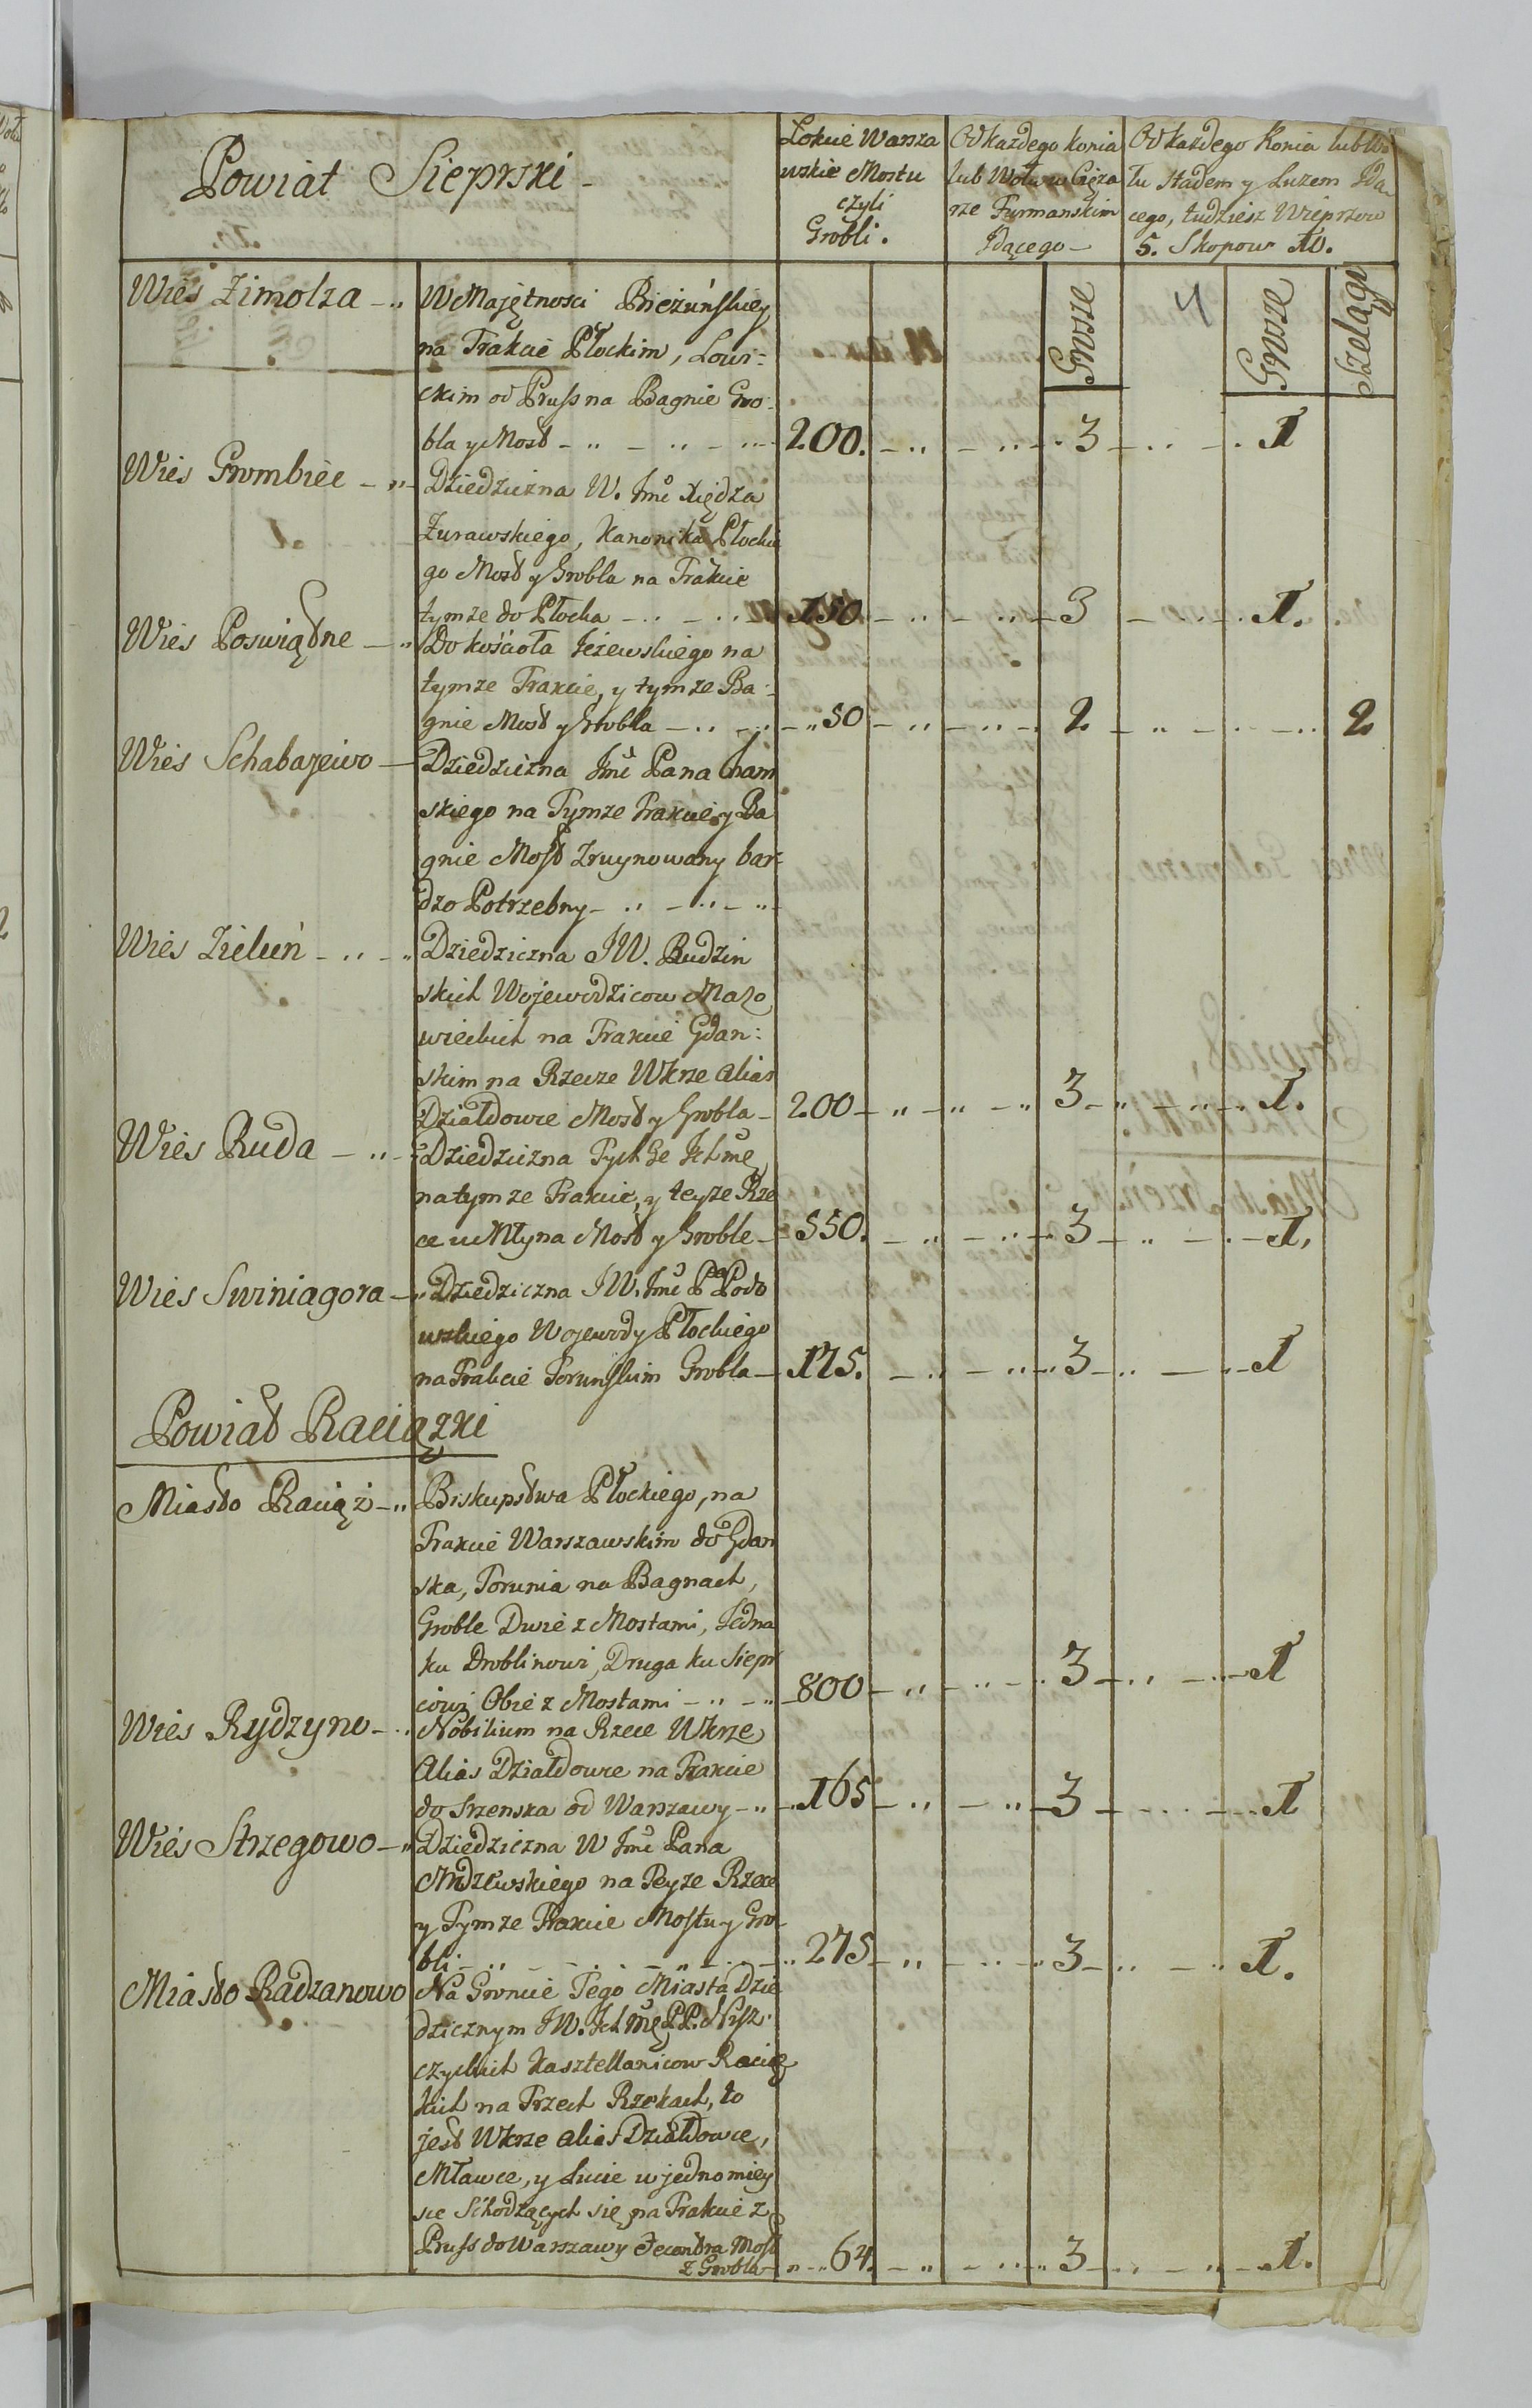 Powiat Sieprski -
Łokcie Warsza
wskie Mostu
czyli
Grobli.
Od każdego konia
lub Wołu w Cięża
rze Furmanskim
Idącego -
Od każdego Konia lub Wo
łu Stadem y Luzem Idą
cego, tudziesz Wieprzow
5. Skopow 10.
Grosze
4
Grosze
Szelągi
Wieś Zimolza
W Majętnosci Bieżuńskiey
na Trakcie Płockim, Lowi=
ckim od Pruss na Bagnie Gro:
bla y Most 200. 3 1
Wieś Grombiec
Dziedziczna W. Jmć Xiędza
Żurawskiego, Kanonika Płockie
go Most y Grobla na Trakcie
tymze do Płocka 150 3 1.
Wieś Poswiątne
Do kościoła Jeżewskiego na
tymze Trakcie, y tymze Ba:
gnie Most y Grobla 50 2 2
Wieś Schabajewo
Dziedziczna Jmć Pana Cham
skiego na Tymze Trakcie y Ba
gnie Most Zruynowany bar=
dzo Potrzebny
Wieś Zieluń
Dziedziczna JW. Rudzin
skich Wojewodzicow Mazo
wieckich na Trakcie Gdan:
skim na Rzecze Wkrze alias
Działdowce Most y Grobla 200 3 1.
Wieś Ruda
Dziedziczna Tych Że Ichmę
na tymze Trakcie, y teyze Rze
ce u Młyna Most y Groble 550. 3 1.
Wieś Swiniagora
Dziedziczna JW. Jmć Pa Podo
wskiego Wojewody Płockiego
na Trakcie Toruńskim Grobla 175. 3 1
Powiat Raciązki
Miasto Raciąż
Biskupstwa Płockiego, na
Trakcie Warszawskim do Gdan
ska, Torunia na Bagnach,
Groble Dwie z Mostami, Jedna
ku Droblinowi, Druga ku Siepr
cowi Obie z Mostami 800 3 1
Wieś Rydzyno
Nobilium na Rzece Wkrze
Alias Działdowce na Trakcie
do Srzenska od Warszawy 165 3 1
Wieś Strzegowo
Dziedziczna W Jmć Pana
Mdzewskiego na Teyze Rzece
y Tymze Trakcie Mostu y Gro
bli 275 3 1.
Miasto Radzanowo
Na Gruncie Tego Miasta Dzie
dzicznym JW. Ichmę PP. Nisz.
czyckich Kasztellanicow Raciąz
kich na Trzech Rzekach, to
jest Wkrze alias Działdowce,
Mławce, y Lucie w jedno miey
sce Schodzących się na Trakcie z
Pruss do Warszawy Most
z Groblą 64. 3 1.